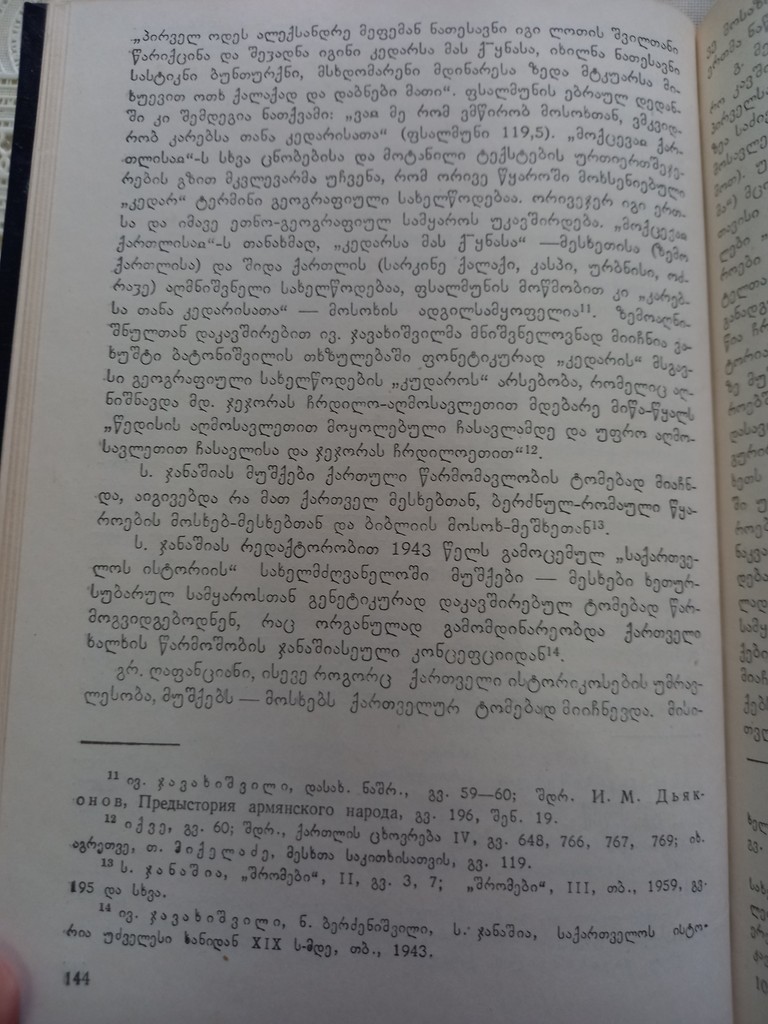 „პირველ ოდეს ალექსანდრე მეფემან ნათესავნი იგი ლოთის შვილთანი
წარიქცინა და შეჯადნა იგინი კედარსა მას ქ~ყნასა, იხილნა ნათესავნი
სასტიკნი ბუნთურქნი, მსხდომარენი მდინარესა ზედა მტკუარსა მი-
ხუევით ოთხ ქალაქად და დაბნები მათი“. ფსალმუნის ებრაულ დედან-
ში კი შემდეგია ნათქვამი: „ვაჲ მე რომ ვმწირობ მოსოხთან, ვმკვიდ-
რობ კარებსა თანა კედარისათა“ (ფსალმუნი 119,5). „მოქცევაჲ ქარ-
თლისაჲ“-ს სხვა ცნობებისა და მოტანილი ტექსტების ურთიერთშეჯე-
რების გზით მკვლევარმა უჩვენა, რომ ორივე წყაროში მოხსენიებული
„კედარ“ ტერმინი გეოგრაფიული სახელწოდებაა. ორივეჯერ იგი ერთ-
სა და იმავე ეთნო-გეოგრაფიულ სამყაროს უკავშირდება. „მოქცევაჲ
ქართლისაჲ“-ს თანახმად, „კედარსა მას ქ~ყნასა“ —მესხეთისა (ზემო
ქართლისა) და შიდა ქართლის (სარკინე ქალაქი, კასპი, ურბნისი, ოძ-
რაჯე) აღმნიშვნელი სახელწოდებაა, ფსალმუნის მოწმობით კი „კარებ-
სა თანა კედარისათა“ — მოსოხის ადგილსამყოფელია¹¹. ზემოაღნი-
შნულთან დაკავშირებით ივ. ჯავახიშვილმა მნიშვნელოვნად მიიჩნია ვა-
ხუშტი ბატონიშვილის თხზულებაში ფონეტიკურად „კედარის“ მსგავ-
სი გეოგრაფიული სახელწოდების „კუდაროს“ არსებობა, რომელიც აღ-
ნიშნავდა მდ. ჯეჯორას ჩრდილო-აღმოსავლეთით მდებარე მიწა-წყალს
„წედისის აღმოსავლეთით მოყოლებული ჩასავლამდე და უფრო აღმო-
სავლეთით ჩასავლისა და ჯეჯორას ჩრდილოეთით“¹².
ს. ჯანაშიას მუშქები ქართული წარმომავლობის ტომებად მიაჩნ-
და, აიგივებდა რა მათ ქართველ მესხებთან, ბერძნულ-რომაული წყა-
როების მოსხებ-მესხებთან და ბიბლიის მოსოხ-მეშხეთან¹³.
ს. ჯანაშიას რედაქტორობით 1943 წელს გამოცემულ „საქართვე-
ლოს ისტორიის“ სახელმძღვანელოში მუშქები — მესხები ხეთურ-
სუბარულ სამყაროსთან გენეტიკურად დაკავშირებულ ტომებად წარ-
მოგვიდგებოდნენ, რაც ორგანულად გამომდინარეობდა ქართველი
ხალხის წარმოშობის ჯანაშიასეული კონცეფციიდან¹⁴.
გრ. ღაფანციანი, ისევე როგორც ქართველი ისტორიკოსების უმრავ-
ლესობა, მუშქებს — მოსხებს ქართველურ ტომებად მიიჩნევდა. მისი-
¹¹ ივ. ჯავახიშვილი, დასახ. ნაშრ., გვ. 59—60; შდრ. И. М. Дьяк-
онов, Предыстория армянского народа, გვ. 196, შენ. 19.
¹² იქვე, გვ. 60; შდრ., ქართლის ცხოვრება IV, გვ. 648, 766, 767, 769; იხ.
აგრეთვე, თ. მიქელაძე, მესხთა საკითხისათვის, გვ. 119.
¹³ ს. ჯანაშია, „შრომები“, II, გვ. 3, 7; „შრომები“, III, თბ., 1959, გვ.
195 და სხვა.
¹⁴ ივ. ჯავახიშვილი, ნ. ბერძენიშვილი, ს. ჯანაშია, საქართველოს ისტო-
რია უძველესი ხანიდან XIX ს-მდე, თბ., 1943.
144